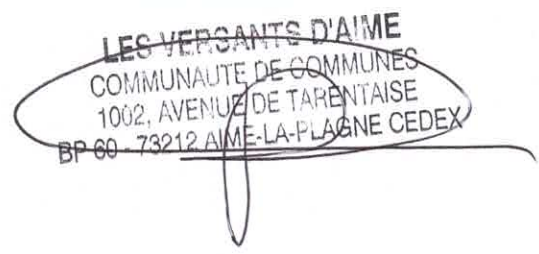 LES VERSANTS D'AIME
COMMUNAUTE DE COMMUNES
1002, AVENUE DE TARENTAISE
BP 60 - 73212 AIME-LA-PLAGNE CEDEX